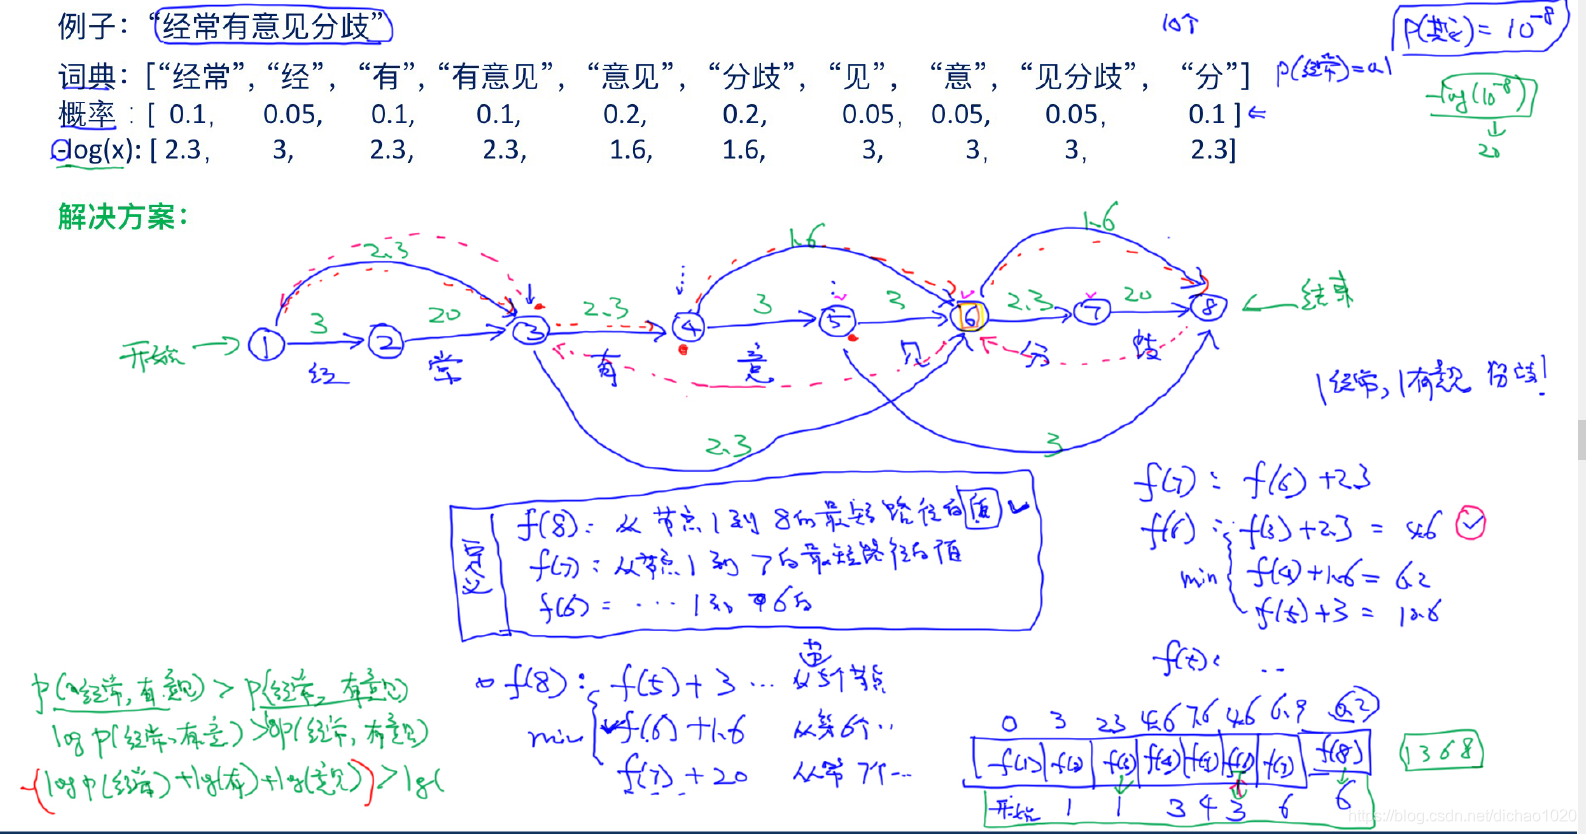 例子：“经常有意见分歧” 10个 P(其它)= 10⁻⁸
词典：[“经常”, “经”, “有”, “有意见”, “意见”, “分歧”, “见”, “意”, “见分歧”, “分”] P(经常)=0.1
概率 : [ 0.1, 0.05, 0.1, 0.1, 0.2, 0.2, 0.05, 0.05, 0.05, 0.1 ]
-log(10⁻⁸)
-log(x): [ 2.3, 3, 2.3, 2.3, 1.6, 1.6, 3, 3, 3, 2.3]
20
解决方案：
2.3 1.6 1.6
3 20 2.3 3 3 2.3 20 结束
开始 1 2 3 4 5 6 7 8
经 常 有 意 见 分 歧
|经常,|有意见 |分歧|
2.3 3
定义
f(8): 从节点1到8的最短路径的值
f(7): 从节点1到7的最短路径的值
f(6) = ... 1到 6的
f(7): f(6) +2.3
f(6): f(3)+2.3 = 4.6
min f(4)+1.6 = 6.2
f(5)+3 = 10.6
f(5): ...
p(经常,有,意见) > p(经常, 有意见)
log p(经常,有,意见) > log p(经常,有意见)
-(log p(经常)+log(有)+log(意见)) > log(
f(8): f(5)+3 ... 从5个节点
min f(6)+1.6 从第6个..
f(7)+20 从第7个...
0 3 2.3 4.6 7.6 4.6 6.9 6.2
f(1) f(2) f(3) f(4) f(5) f(6) f(7) f(8) 1368
开始 1 1 3 4 3 6 6
https://blog.csdn.net/dichao1020